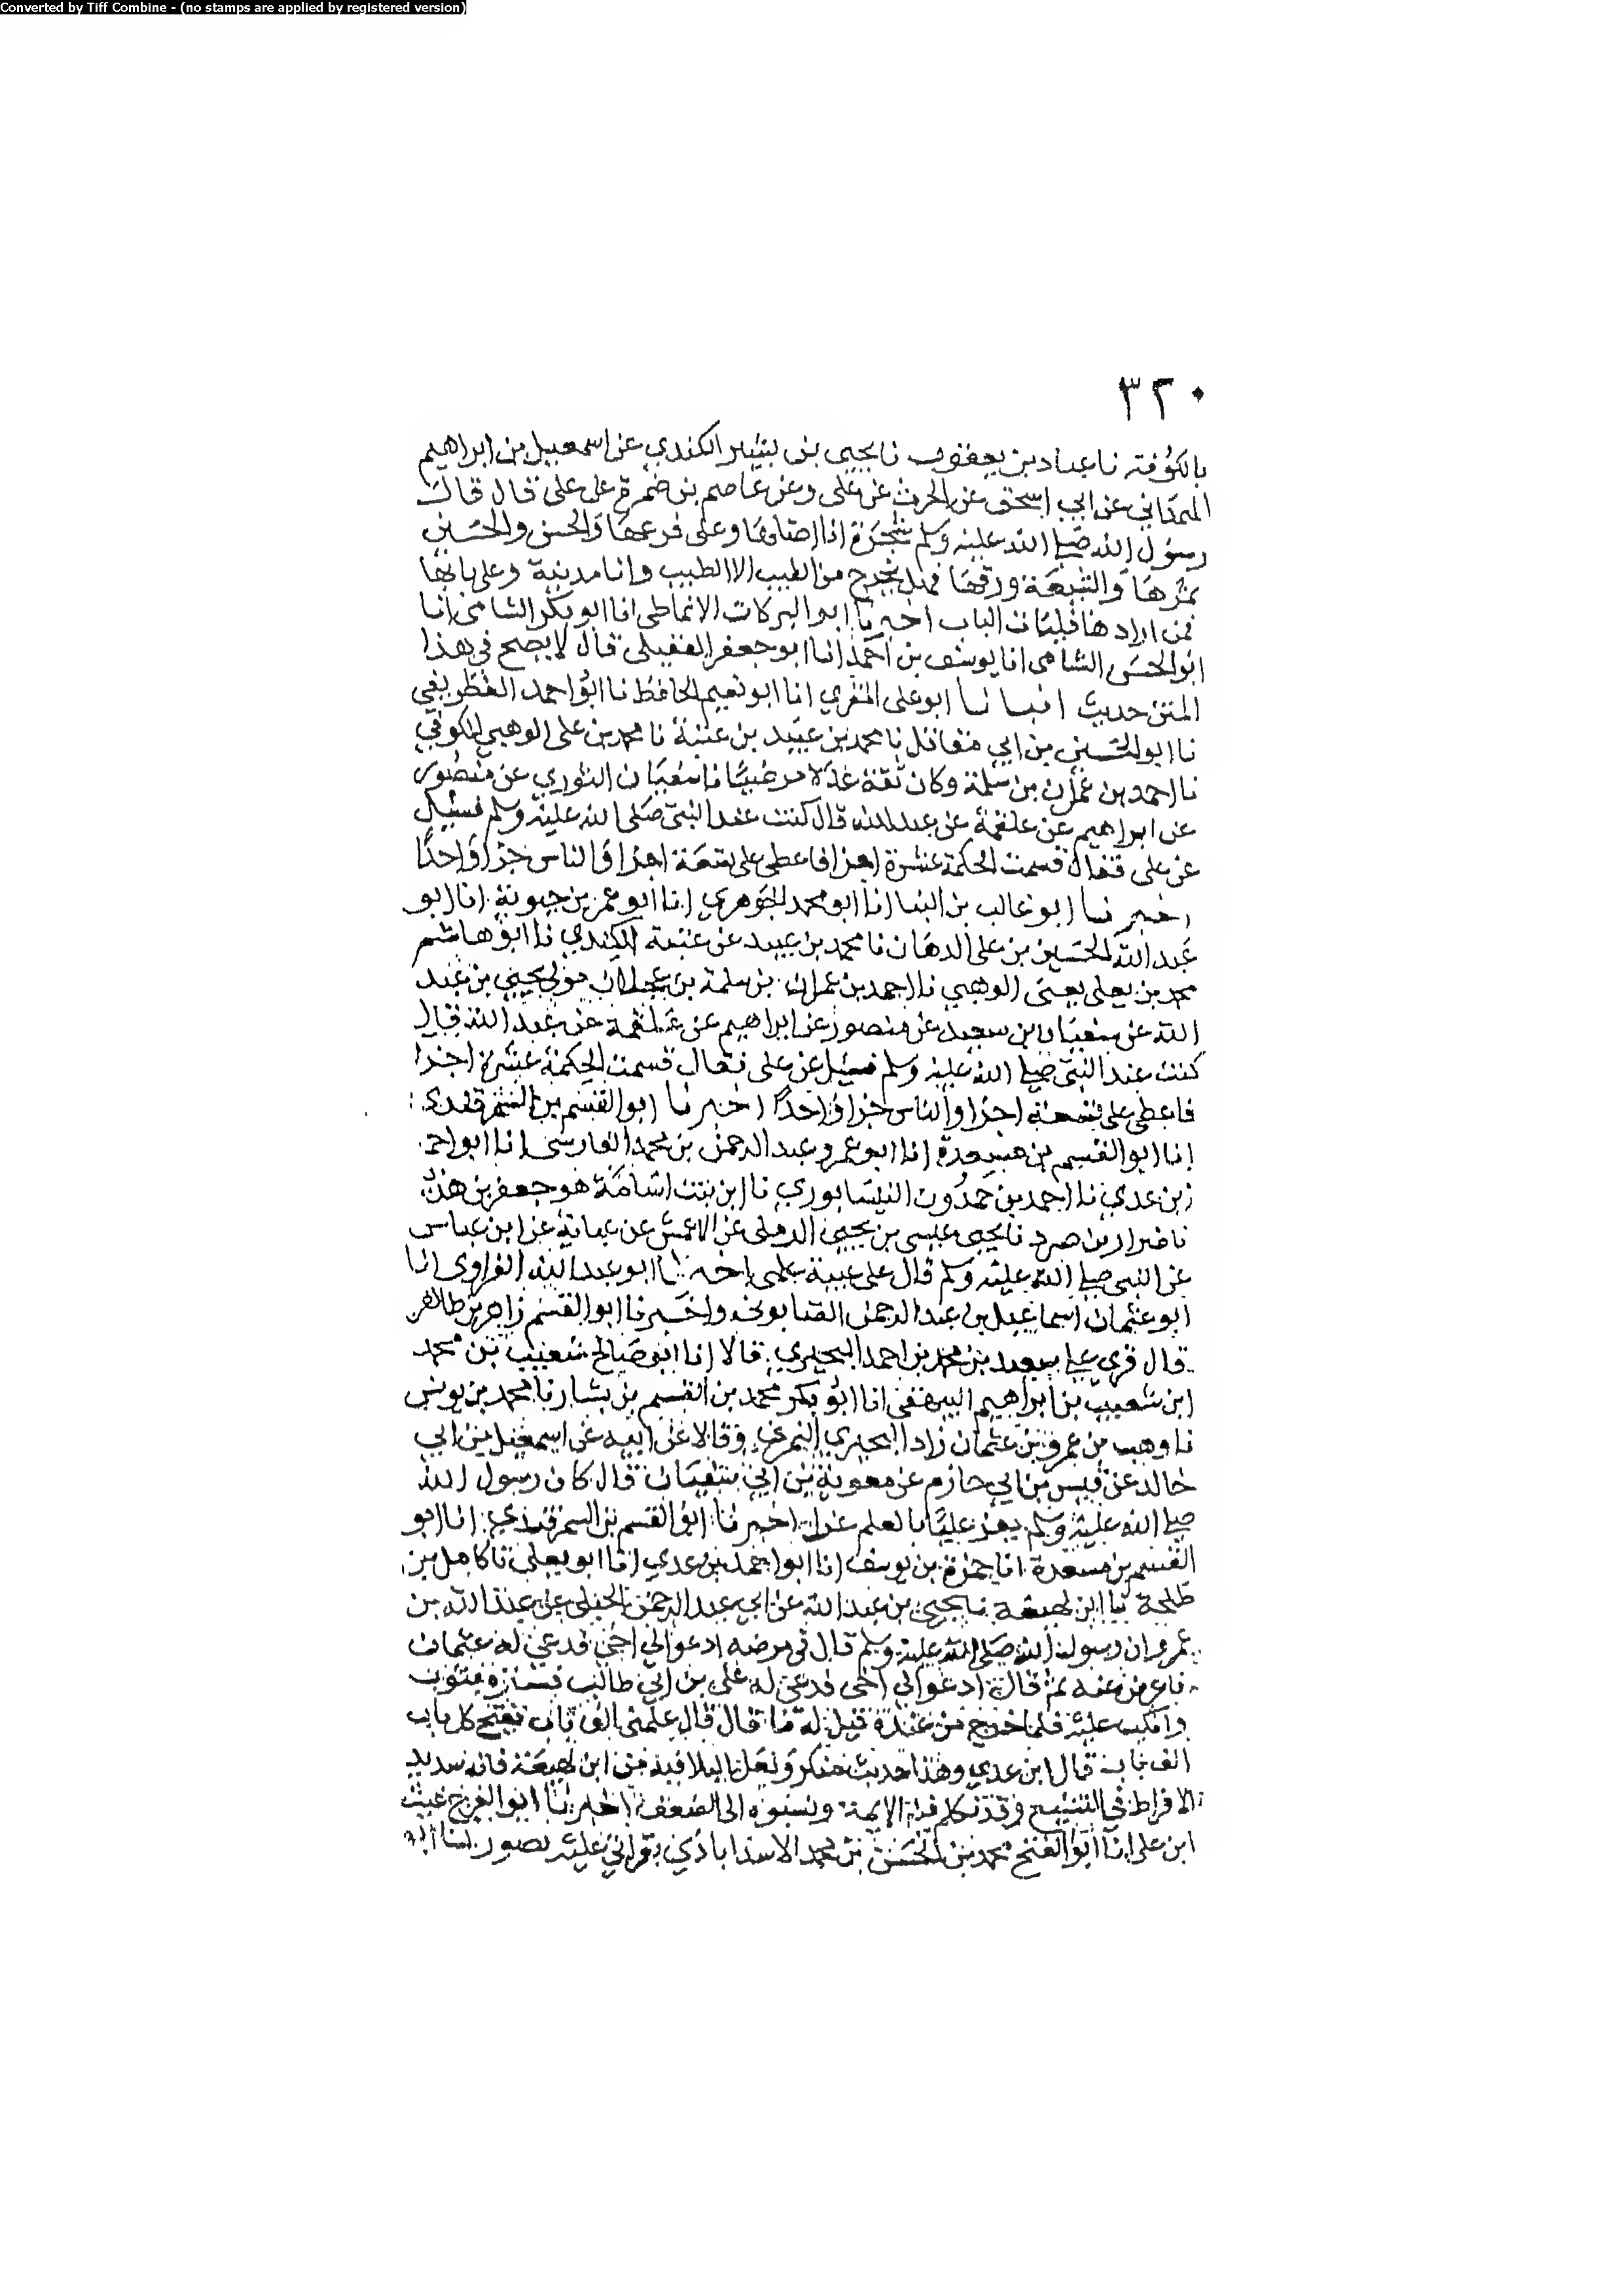 Converted by Tiff Combine - (no stamps are applied by registered version)
٣٢٠
بالكوفة نا عباد بن يعقوب نا يحيى بن بشير الكندي عن اسمعيل بن ابراهيم
الهمداني عن ابي اسحق عن الحرث عن علي وعن عاصم بن ضمرة عن علي قال قال
رسول الله صلى الله عليه وسلم شجرة انا اصلها وعلى فرعها والحسن والحسين
ثمرها والشيعة ورقها فهل يخرج من الطيب الا الطيب وانا مدينة وعلى بابها
فمن ارادها فليات الباب اخبرنا ابو البركات الانماطي انا ابو بكر الشامي انا
ابو الحسن الشامي انا يوسف بن احمد انا ابو جعفر العقيلي قال لا يصح في هذا
المتن حديث انبانا ابو علي المقري انا ابو نعيم الحافظ نا ابو احمد الغطريفي
نا ابو الحسين بن ابي مقاتل نا محمد بن عبيد بن عتبة نا محمد بن علي الوهبي الكوفي
نا احمد بن عمران بن سلمة وكان ثقة عدلا مرضيا نا سفيان الثوري عن منصور
عن ابراهيم عن علقمة عن عبد الله قال كنت عند النبي صلى الله عليه وسلم فسئل
عن علي فقال قسمت الحكمة عشرة اجزا فاعطى علي تسعة اجزا والناس جزا واحدا
اخبرنا ابو غالب بن البنا انا ابو محمد الجوهري انا ابو عمر بن حيوية انا ابو
عبد الله الحسين بن علي الدهان نا محمد بن عبيد عن عتبة الكندي نا ابو هاشم
محمد بن يعلى يعنى الوهبي نا احمد بن عمران بن سلمة بن عجلان مولى يحيى بن عبد
الله عن سفيان بن سعيد عن منصور عن ابراهيم عن علقمة عن عبد الله قال
كنت عند النبي صلى الله عليه وسلم فسئل عن علي فقال قسمت الحكمة عشرة اجزا
فاعطى علي تسعة اجزا والناس جزا واحدا اخبرنا ابو القسم بن السمرقندي
انا ابو القسم بن مسعدة انا ابو عمرو عبد الرحمن بن محمد الفارسي انا ابو احمد
بن عدي نا احمد بن حمدون النيسابوري نا ابن بنت اسامة هو جعفر بن هذيل
نا ضرار بن صرد نا يحيى عيسى بن يحيى الرملى عن الاعمش عن عباية عن ابن عباس
عن النبي صلى الله عليه وسلم قال علي عيبة علمى اخبرنا ابو عبد الله الفراوي انا
ابو عثمان اسماعيل بن عبد الرحمن الصابوني واخبرنا ابو القسم زاهر بن طاهر
قال قري على سعيد بن محمد بن احمد البحيري قالا انا ابو صالح شعيب بن محمد
ابن شعيب بن ابراهيم البيهقي انا ابو بكر محمد بن القسم بن بشار نا محمد بن يونس
نا وهب بن عمرو بن عثمان زاد البحيري النمري وقالا عن ابيه عن اسمعيل بن ابي
خالد عن قيس بن ابي حازم عن معوية بن ابي سفيان قال كان رسول الله
صلى الله عليه وسلم يغر عليا بالعلم غرا اخبرنا ابو القسم بن السمرقندي انا ابو
القسم بن مسعدة انا حمزة بن يوسف انا ابو احمد بن عدي انا ابو يعلى نا كامل بن
طلحة نا ابن لهيعة نا يحيى بن عبد الله عن ابي عبد الرحمن الحبلي عن عبد الله بن
عمرو ان رسول الله صلى الله عليه وسلم قال في مرضه ادعوا لي اخي فدعي له عثمان
فاعرض عنه ثم قال ادعوا لي اخي فدعي له علي بن ابي طالب فستره بثوب
وانكب عليه فلما خرج من عنده قيل له ما قال قال علمني الف باب يفتح كل باب
الف باب قال ابن عدي وهذا حديث منكر ولعل البلا فيه من ابن لهيعة فانه شديد
الافراط في التشيع وقد تكلم فيه الايمة ونسبوه الى الضعف اخبرنا ابو الفرج غيث
ابن علي انا ابو الفتح محمد بن الحسن بن محمد الاسداباذي بقراتي عليه بصور انا ابو